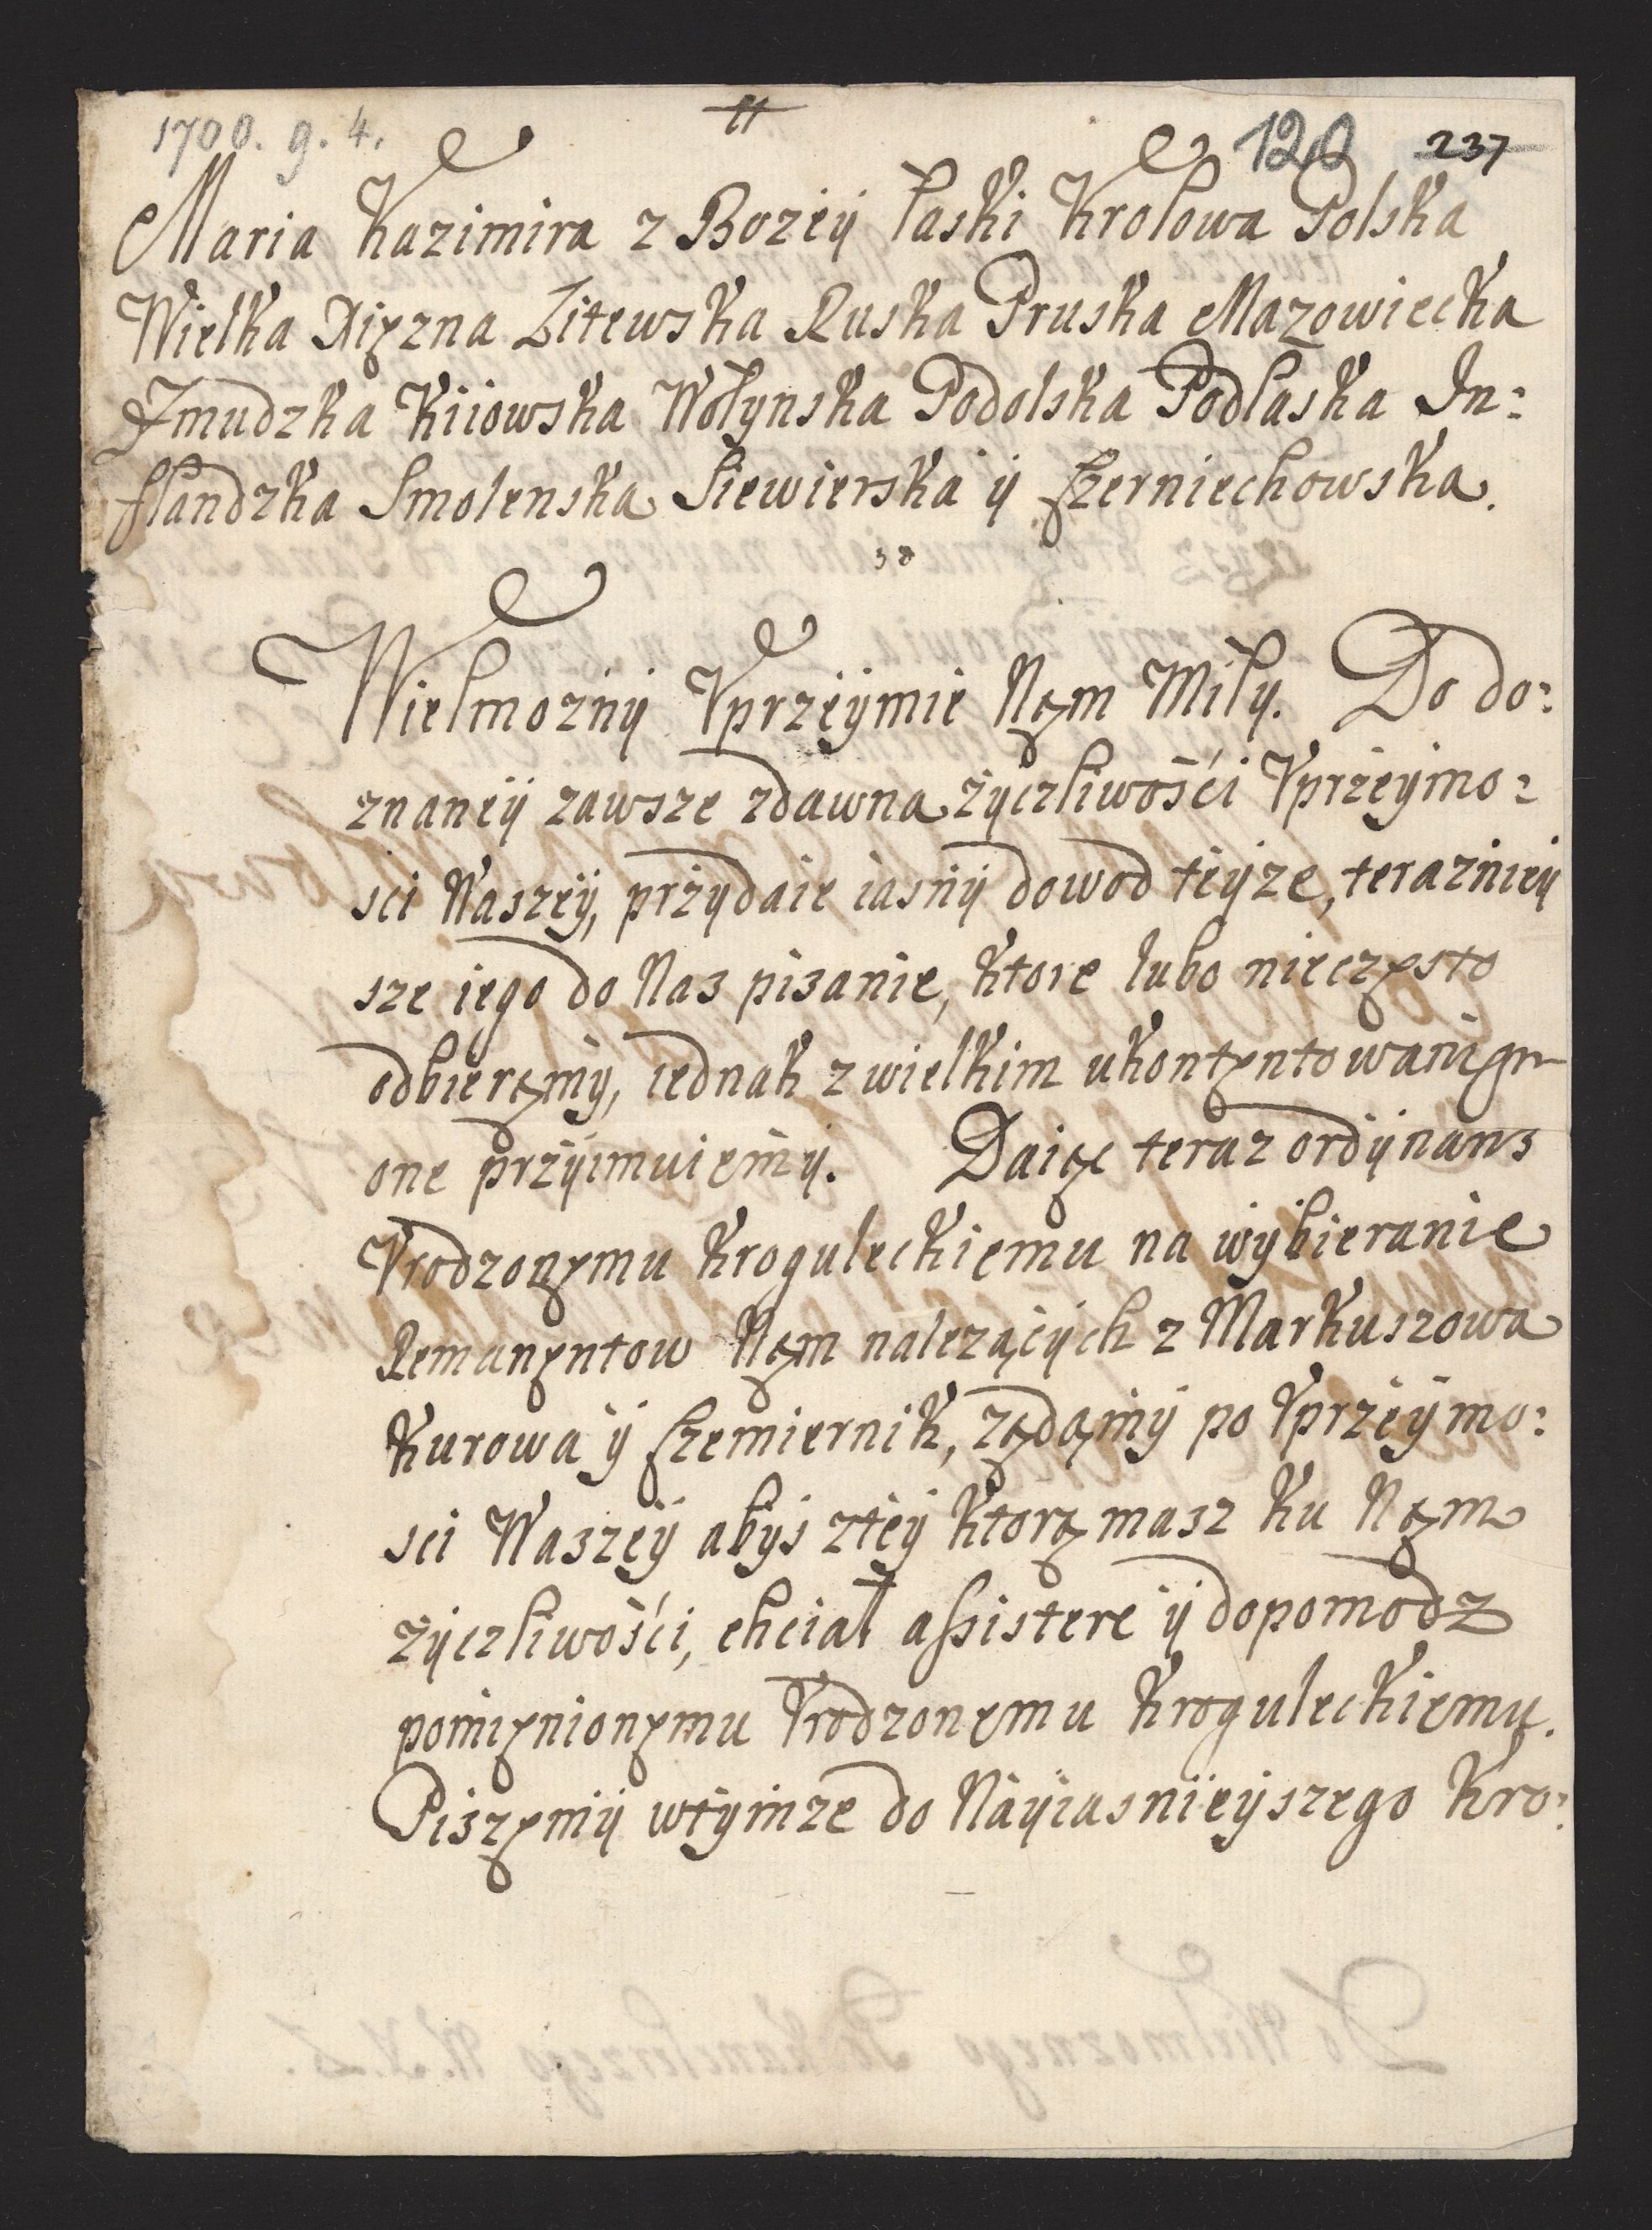 1700. 9. 4.
11
120 237
Maria Kazimira z Bozey łaski Krolowa Polska
Wielka Xięzna Litewska Ruska Pruska Mazowiecka
Zmudzka Kiiowska Wołynska Podolska Podlaska In:
flandzka Smolenska Siewierska ÿ Czerniechowska.
Wielmoznÿ Vprzeÿmie Nąm Miły. Do do:
znaneÿ zawsze zdawna zÿczliwośći Vprzeÿmo:
sci Waszeÿ, przÿdaie iasnÿ dowod teÿze, terazniey
sze iego do Nas pisanie, ktore lubo nieczęsto
odbierąmÿ, iednak z wielkim ukontęntowanięm
one przÿimuięmÿ. Daiąc teraz ordÿnans
Vrodzonęmu Kroguleckięmu na wÿbieranie
Remanęntow Nąm nalezącÿch z Markuszowa
Kurowa ÿ Czemiernik, ządąmÿ po Vprzeÿmo:
sci Waszeÿ abÿs zteÿ ktorą masz ku Nąm
zÿczliwośći, chciał assistere ÿ dopomodz
pomięnionęmu Vrodzonęmu Kroguleckięmu.
Piszęmÿ wtÿmze do Naÿiasnieÿszego Kro: